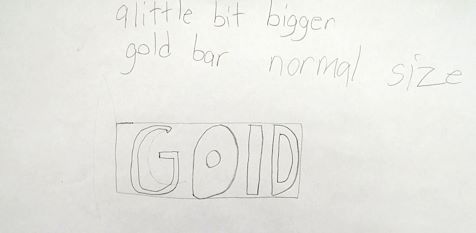 alittle bit bigger
gold bar normal size
GOlD